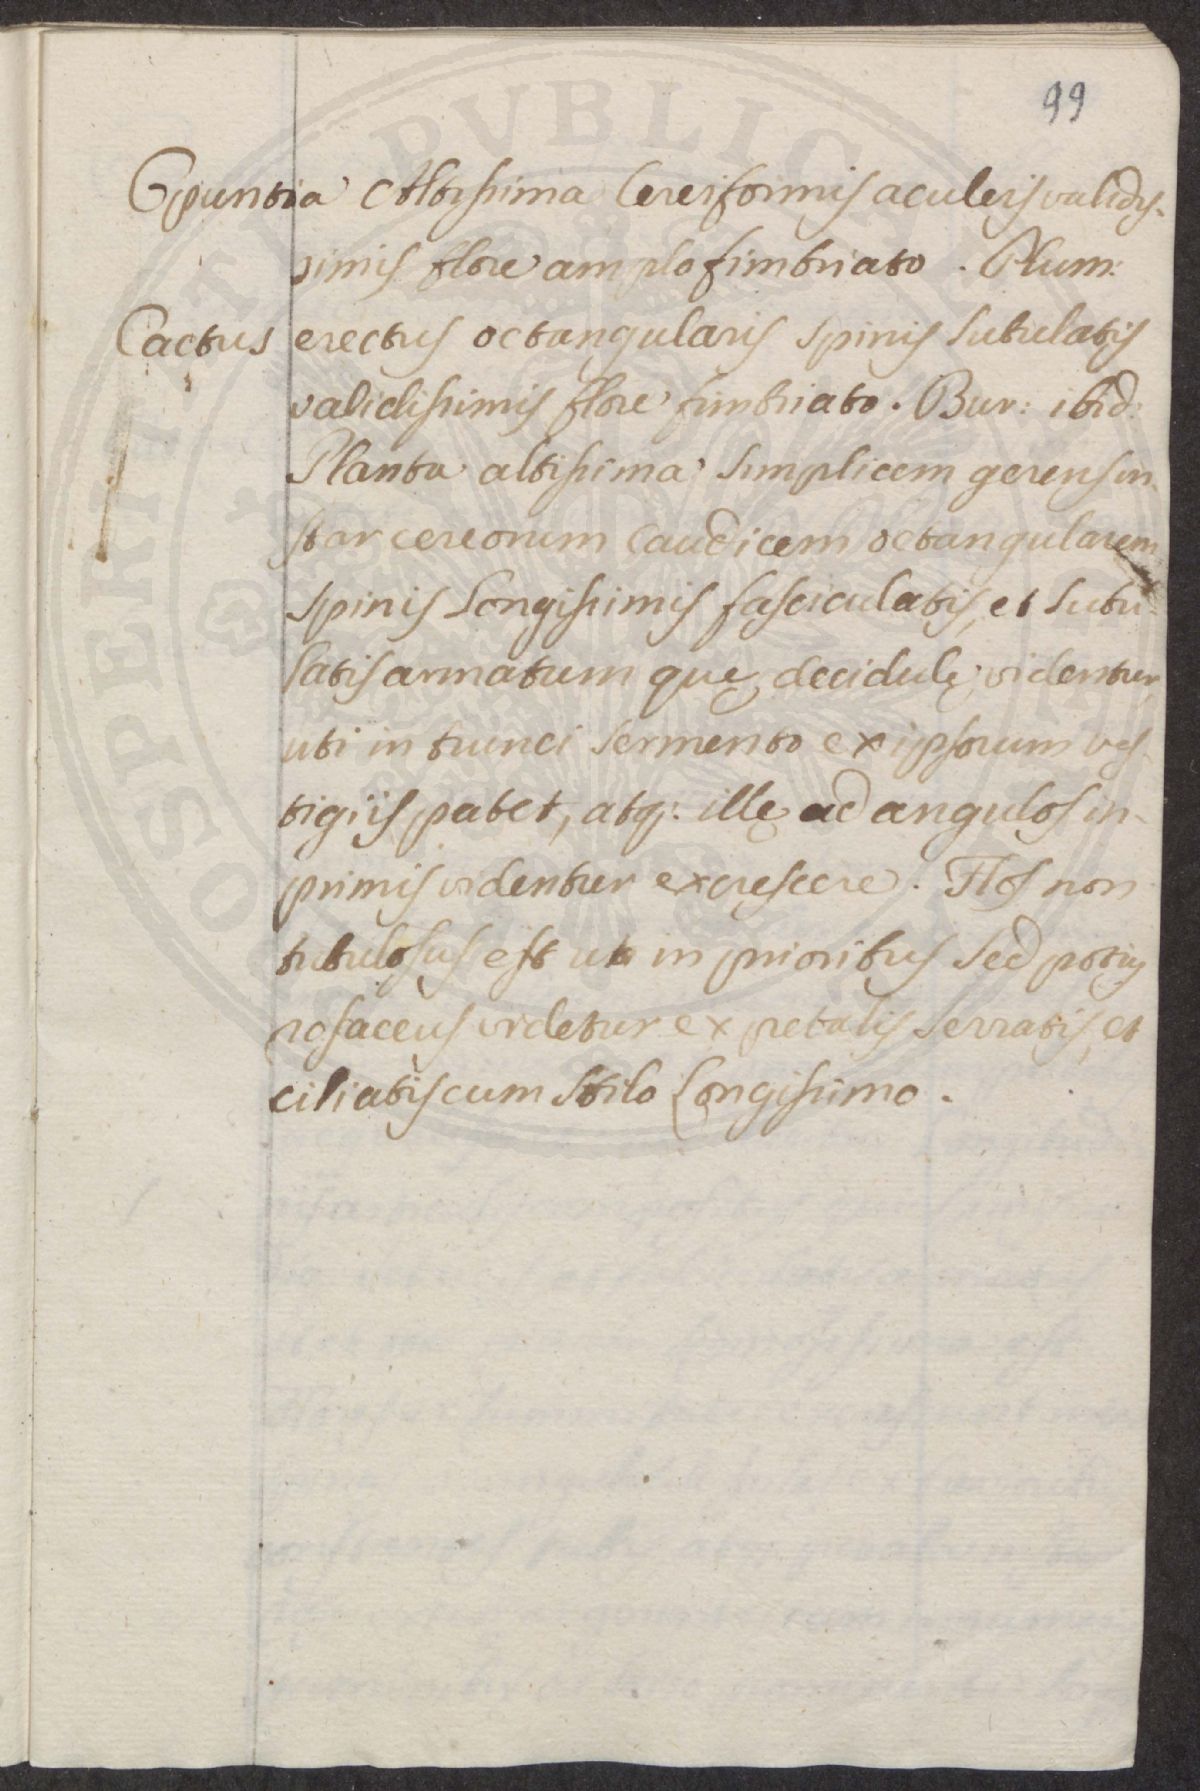 99
Opuntia Altissima Cereiformis aculeis validis-
simis flore amplo fimbriato . Plum:
Cactus erectus octangularis spinis subulatis
validissimis flore fimbriato . Bur: ibid:
Planta altissima simplicem gerens in-
star cereorum caudicem octangularem
spinis longissimis fasciculatis, et subu-
latis armatum quę decidulę videntur
uti in trunci sermento ex ipsorum ves-
tigiis patet, atq: illę ad angulos in-
primis videntur excrescere . Flos non
tubulosus est ut in prioribus sed potius
rosaceus videtur ex petalis serratis, et
ciliatis cum stilo longissimo .